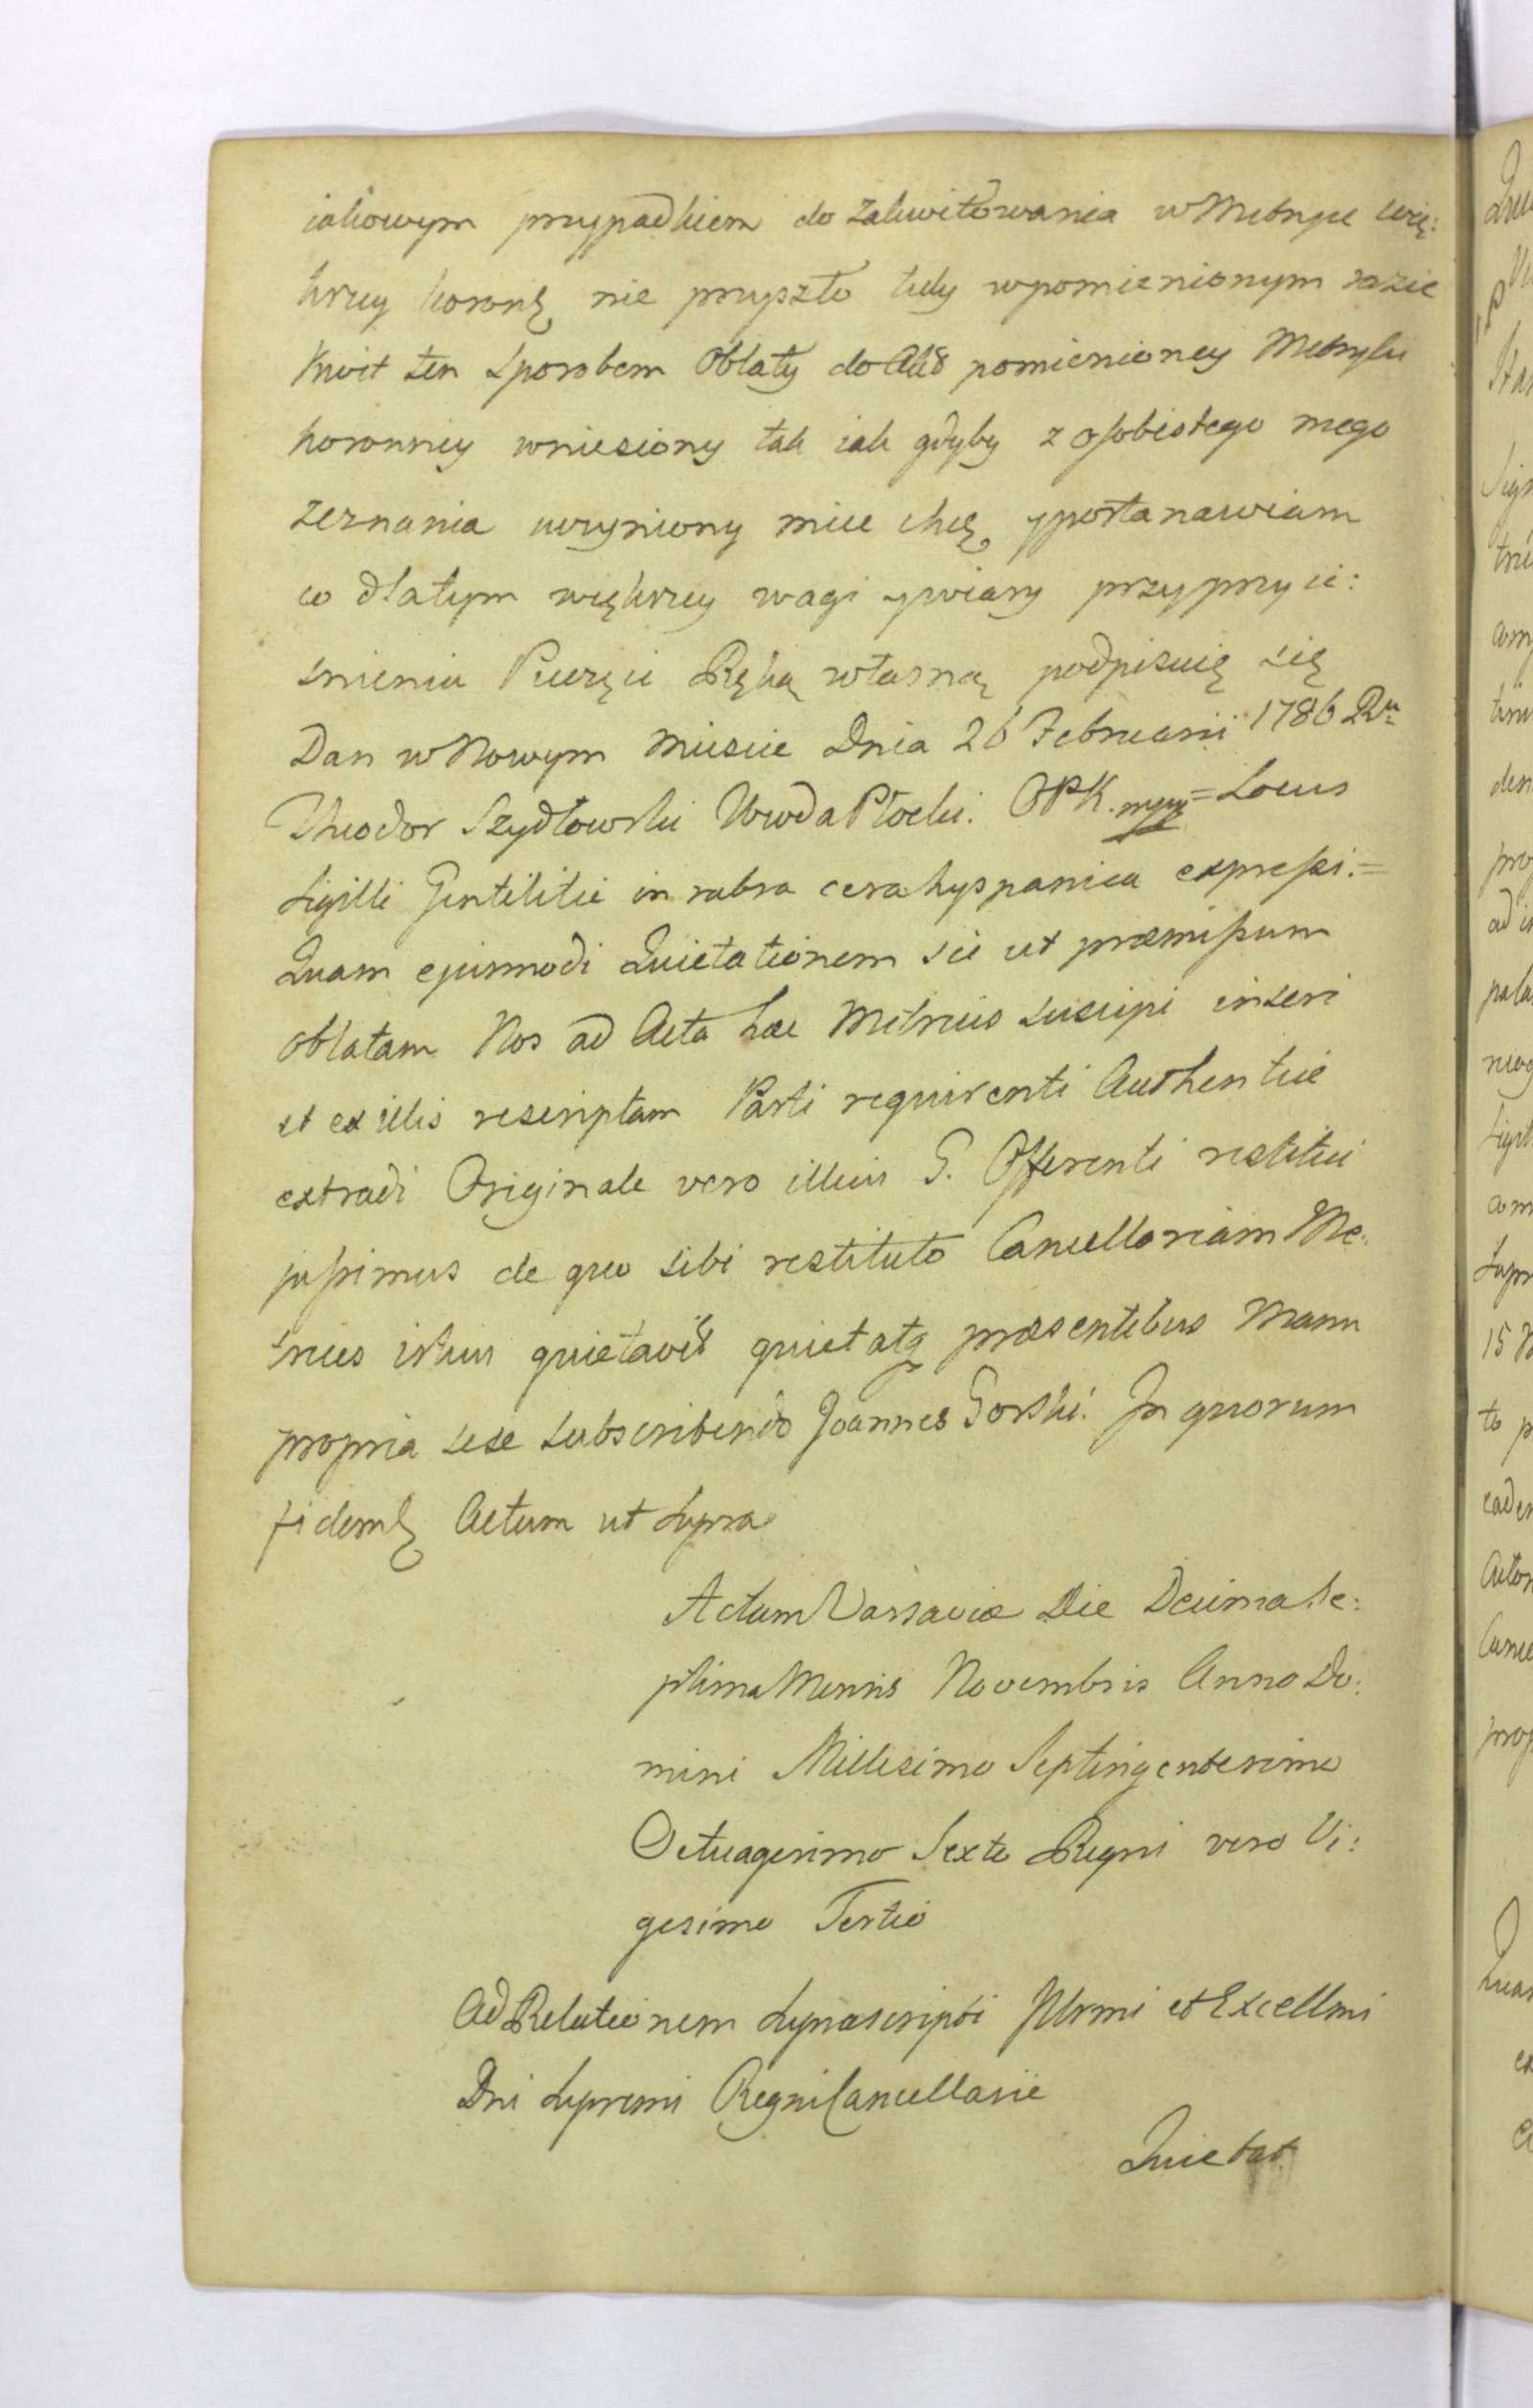 iakowym przypadkiem do zakwitowania w Metryce wię:
kszey koronę nie przyszło tedy wpomienionym razie
Kwit ten sposobem Oblaty do Akt pomienioney Metryki
koronney wniesiony tak iak gdyby z osobistego mego
zeznania uczyniony mieć chcę y postanawiam
co dlatym większey wagi y wiary przy przyci:
śnieniu Pieczęci Ręką własną podpisuię się
Dan w Nowym Mieście Dnia 26 Februarii 1786 Ru
Theodor Szydłowski Wwda Płocki. OPK. mpp = Locus
Sigilli Gentilitii in rubra cera hyspanica expressi. =
Quam ejusmodi Quietationem sic ut præmissum
oblatam Nos ad Acta hæc Metrices suscipi inseri
et ex illis rescriptam Parti requirenti Authentice
extradi Originale vero illius G. Offerenti restitui
jussimus de quo sibi restituto Cancellariam Me:
trices istius quietavit quietatq præsentibus Manu
propria sese subscribendo Joannes Gorski. In quorum
fidem Actum ut supra
Actum Varsaviæ Die Decima Se:
ptima Mensis Novembris Anno Do:
mini Millesimo Septingentesimo
Octuagesimo Sexto Regni vero Vi:
gesimo Tertio
Ad Relationem suprascripti Illrmi et Excellmi
Dni Supremi Regni Cancellarii
Quietat